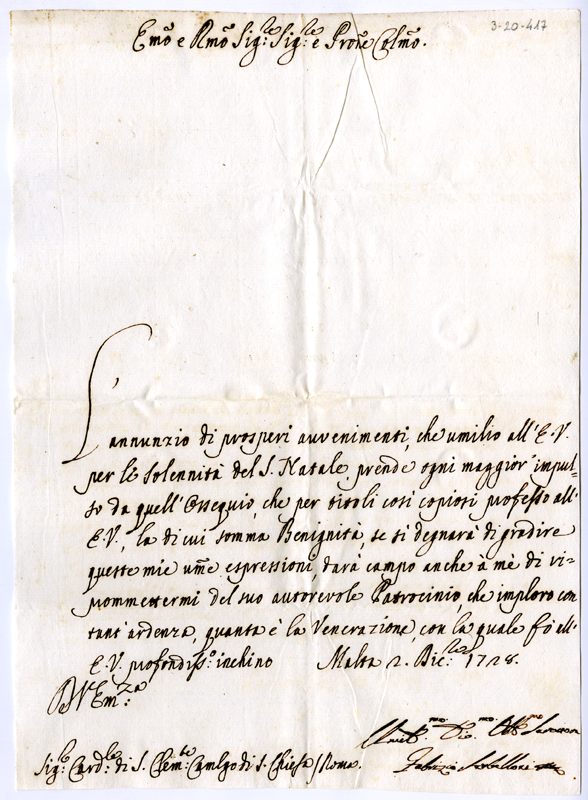 3-20-417
Emõ e Rmõ Sig:re Sig:re e Prõne Colmõ.
L'annunzio di prosperi avvenimenti, che umilio all'E.V.
per le solennità del S. Natale prende ogni maggior impul=
so da quell'Ossequio, che per titoli così copiosi professo all'
E.V., la di cui somma Benignità, se si degnarà di gradire
queste mie um̃e espressioni, darà campo anche à mè di ri=
promettermi del suo autorevole Patrocinio, che imploro con
tant'ardenza, quanta è la Venerazione, con la quale fò all'
E.V. profondiss:o inchino Malta 2. Dic:re 1728.
Di V. Em:za
Umil:mo Dio:mo Obb:mo Servitore
Sig:r Card:le di S. Clem:te Camlgo di S. Chiesa / Roma.
Fabrizio